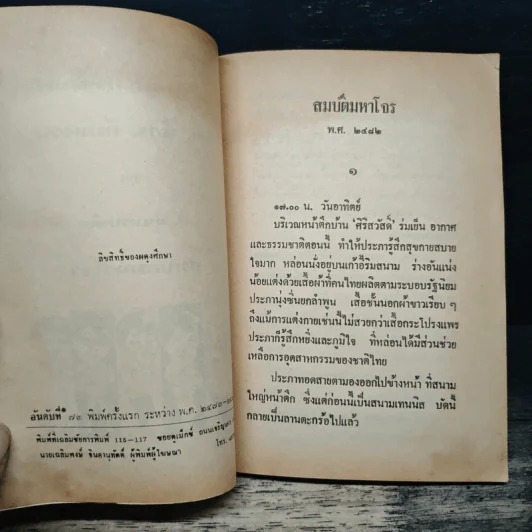 ลิขสิทธิ์ของผดุงศึกษา
อันดับที่ ๗๘ พิมพ์ครั้งแรก ระหว่าง พ.ศ. ๒๔๗๓-
พิมพ์ที่เฉลิมชัยการพิมพ์ 115-117 ซอยอเม็กซ์ ถนนเจริญ
นายเฉลิมพงษ์ จินดานุทัตต์ ผู้พิมพ์ผู้โฆษณา โทร.
สมบัติมหาโจร
พ.ศ. ๒๔๘๒
๑
๑๗.๐๐ น. วันอาทิตย์
บริเวณหน้าตึกบ้าน 'ศิริสวัสดิ์' ร่มเย็น อากาศ
และธรรมชาติตอนนี้ ทำให้ประภารู้สึกสุขกายสบาย
ใจมาก หล่อนนั่งอยู่บนเก้าอี้ริมสนาม ร่างอันแน่ง
น้อยแต่งด้วยเสื้อผ้าที่คนไทยผลิตตามระบอบรัฐนิยม
ประภานุ่งซิ่นยกลำพูน เสื้อชั้นนอกผ้าขาวเรียบ ๆ
ถึงแม้การแต่งกายเช่นนี้ไม่สวยกว่าเสื้อกระโปรงแพร
ประภาก็รู้สึกหยิ่งและภูมิใจ ที่หล่อนได้มีส่วนช่วย
เหลือการอุตสาหกรรมของชาติไทย
ประภาทอดสายตามองออกไปข้างหน้า ที่สนาม
ใหญ่หน้าตึก ซึ่งแต่ก่อนนี้เป็นสนามเทนนิส บัดนี้
กลายเป็นลานตะกร้อไปแล้ว